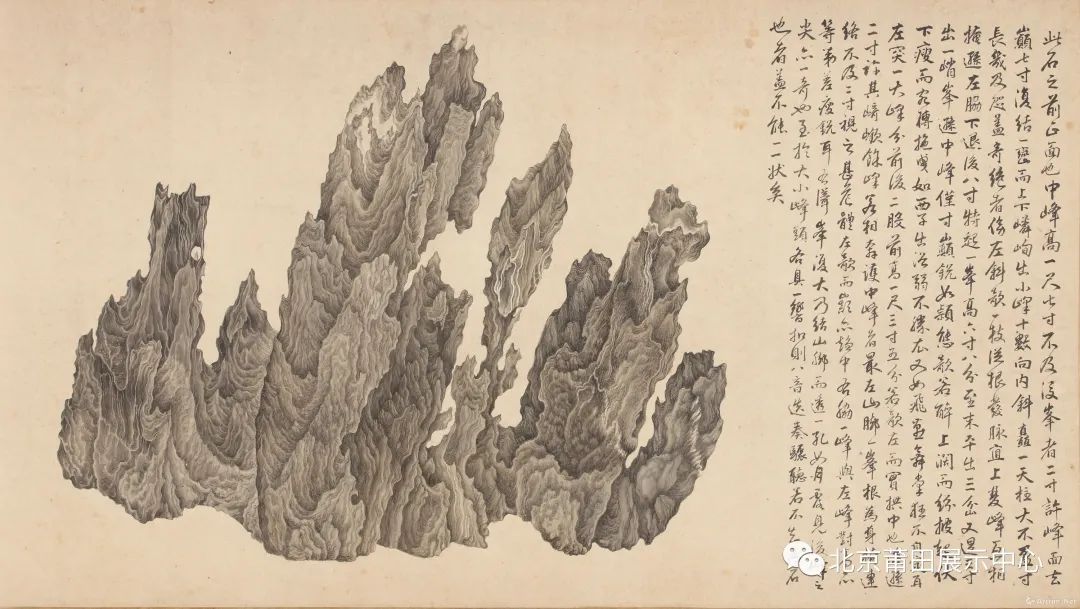 此石之前正面也中峰高一尺七寸不及後峯者二寸許峰面玄
巔七寸復結巒而上下嶙峋出小峰十數向内斜矗一天柱大不盈寸
長幾及咫蓋奇絶者左斜欹一枝從根發脉直上峰相
掩遜左脇下退後八寸特起一峯高六寸八分至末平出三岔又退一寸
出一峭峯避中峰僅寸巔鋭如穎態欹若解上闊而紛披起伏
下瘦而宛轉拖曳如西子出浴弱不勝衣又如飛燕舞掌不自持耳
左突一大峰分前後二股前高一尺三寸五分若欹左而實拱中也遜
二寸許其崎嶔餘峰若相奔護中峰者最左山脚一峯根為身所連
絡不及二寸視之甚危體左欹而巔亦趨中右脇一峰與左峰對峙亦
等弟差瘦鋭耳右峯後大乃結山脚而透一孔如月露見後寸之
尖亦一奇也至於大小峰頭各具一聲扣則八音迭奏驟聽若不石
也者蓋不能二状矣
北京莆田展示中心